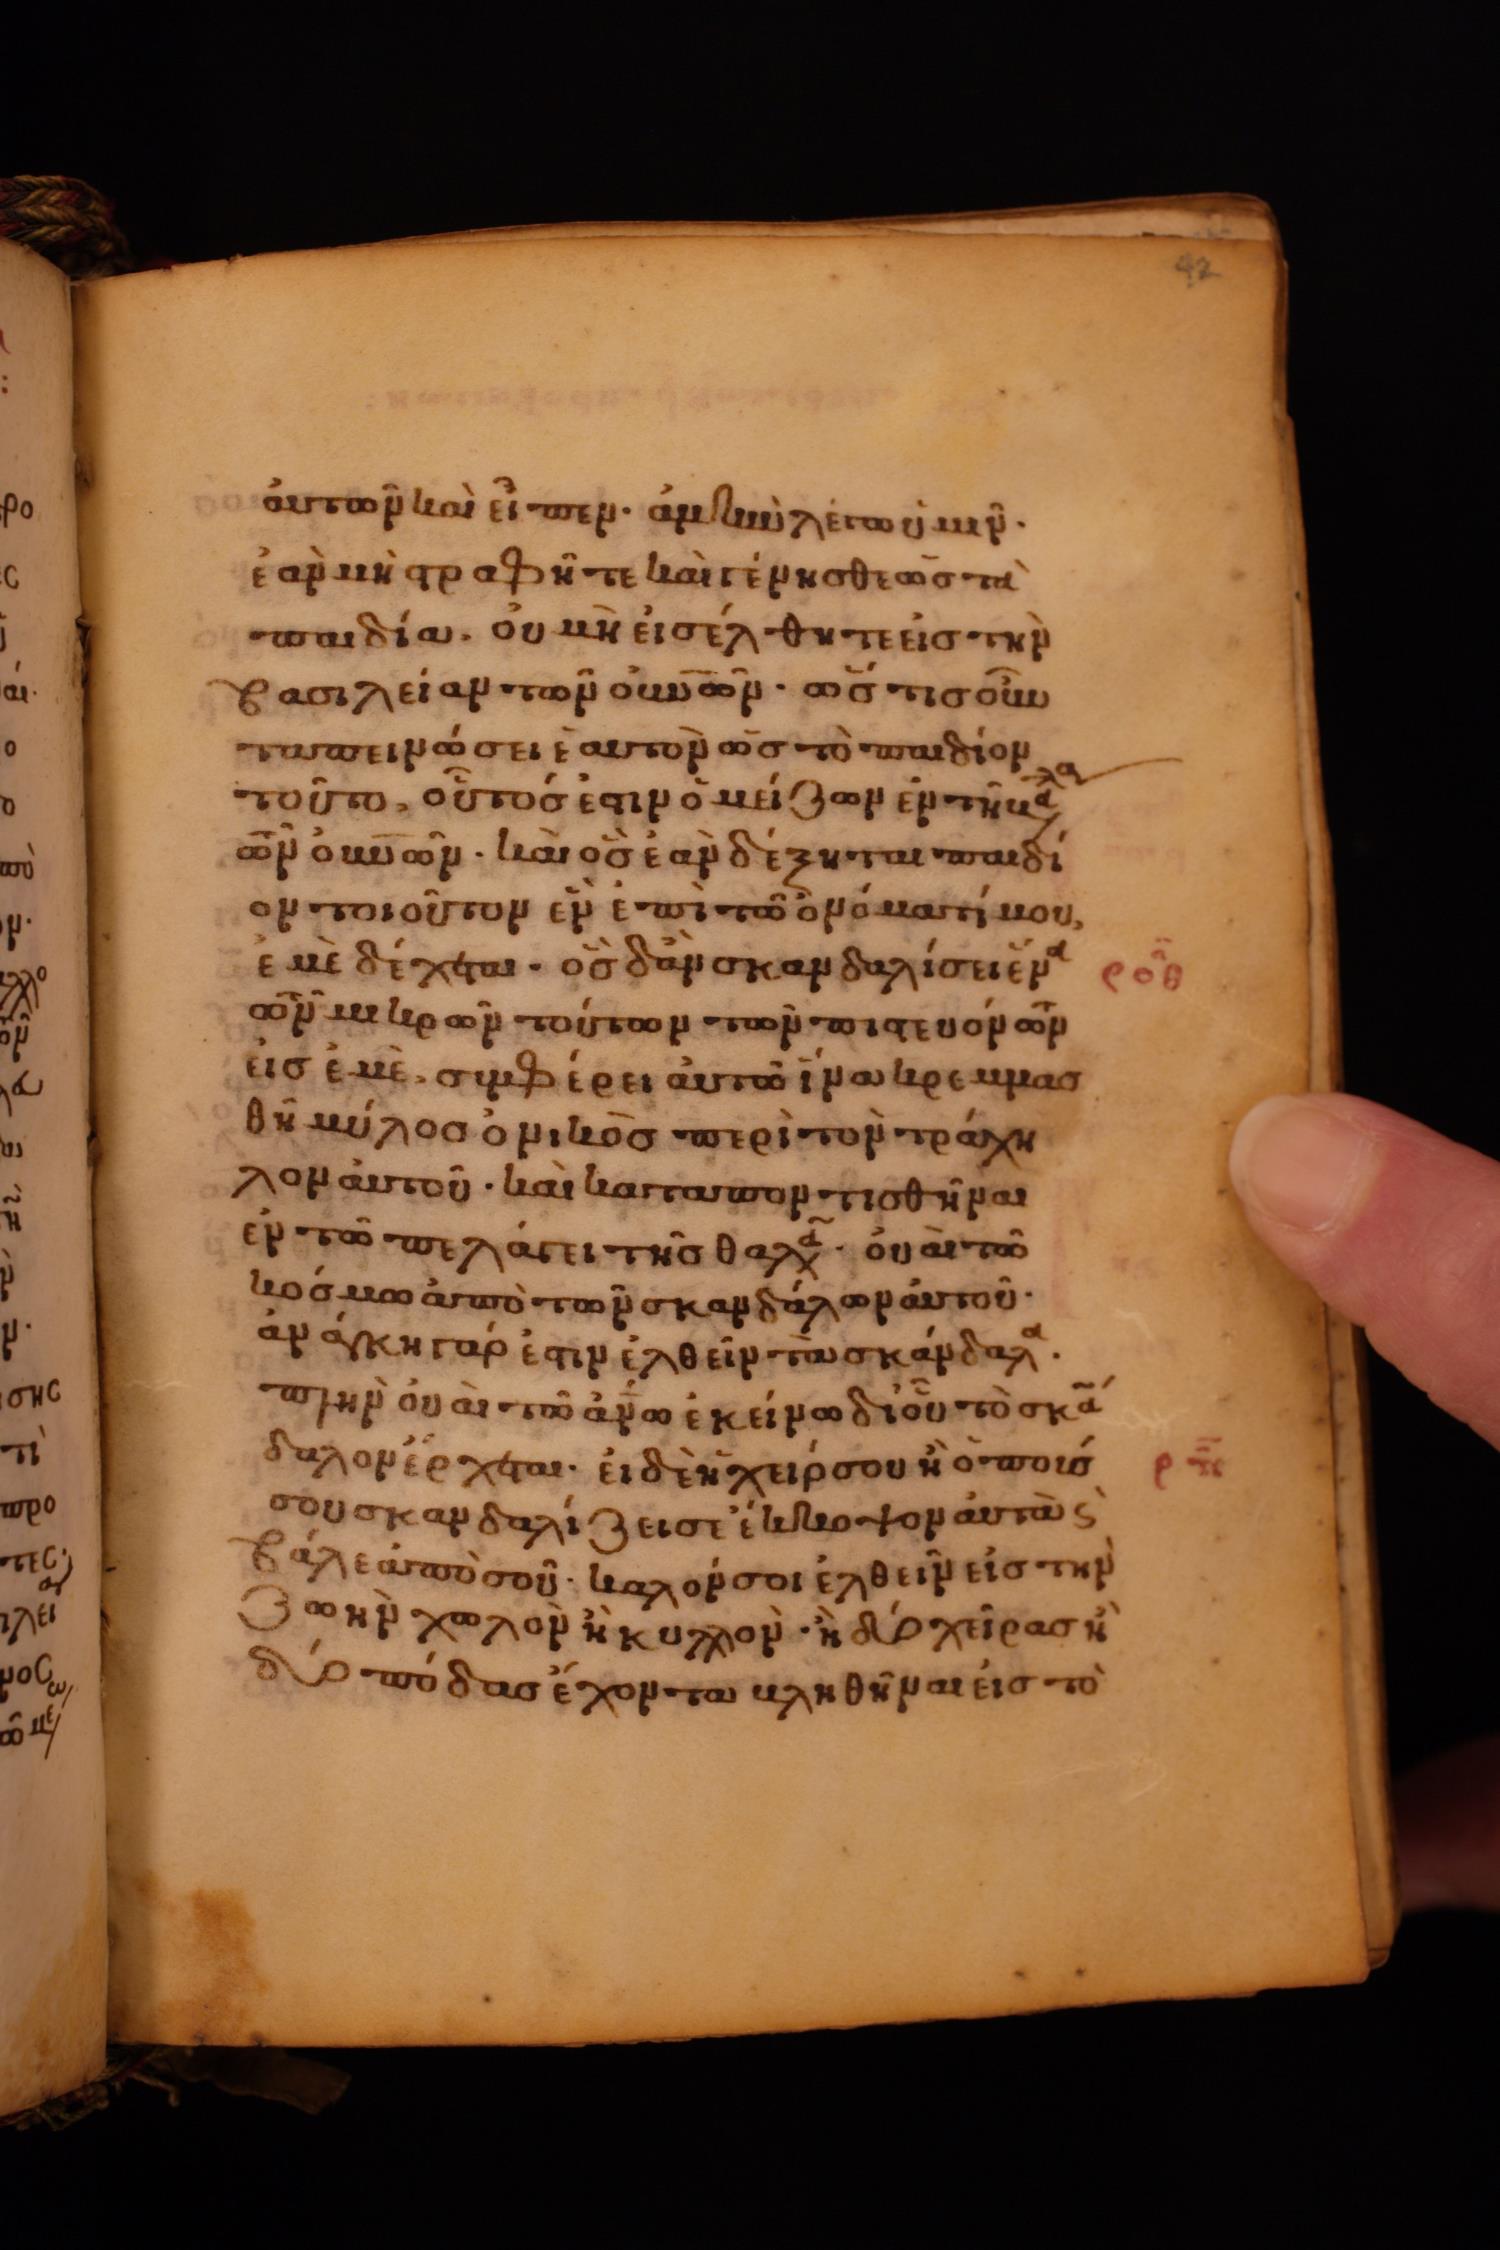 42
ἀυτῶν καὶ εἶπεν· ἀμὴν λέγω ὑμῖν·
ἐὰν μὴ στραφῆτε καὶ γένησθε ὡς τὰ
παιδία, οὐ μὴ εἰσέλθητε εἰς τὴν
βασιλείαν τῶν οὐνῶν· ὅστις οὖν
ταπεινώσει ἑαυτὸν ὡς τὸ παιδίον
τοῦτο, οὗτός ἐστιν ὁ μείζων ἐν τῆ βασιλεία
τῶν οὐνῶν· καὶ ὃς ἐὰν δέξηται παιδί
ον τοιοῦτον ἓν ἐπὶ τῶ ὀνόματί μου,
ἐμὲ δέχεται· ὃς δ' ἂν σκανδαλίσει ἕνα
τῶν μικρῶν τούτων τῶν πιστευόντων
εἰς ἐμὲ, συμφέρει ἀυτῶ ἵνα κρεμμασ
θῆ μύλος ὀνικὸς περὶ τὸν τράχη
λον ἀυτοῦ· καὶ καταποντισθῆναι
ἐν τῶ πελάγει τῆς θαλάσσης· οὐαὶ τῶ
κόσμω ἀπὸ τῶν σκανδάλων ἀυτοῦ·
ἀνάγκη γάρ ἐστιν ἐλθεῖν τὰ σκάνδαλα·
πλὴν οὐαὶ τῶ ἀνω ἐκείνω δι' οὗ τὸ σκάν
δαλον ἔρχεται· εἰ δὲ ἡ χείρ σου ἢ ὁ ποῦς
σου σκανδαλίζει σε ἔκκοψον ἀυτὰ ϛ
βάλε ἀπὸ σοῦ· καλόν σοι ἐλθεῖν εἰς τὴν
ζωὴν χωλὸν ἢ κυλλὸν· ἢ δύο χεῖρας ἢ
δύο πόδας ἔχοντα κληθῆναι εἰς τὸ
ροθ
ρπ